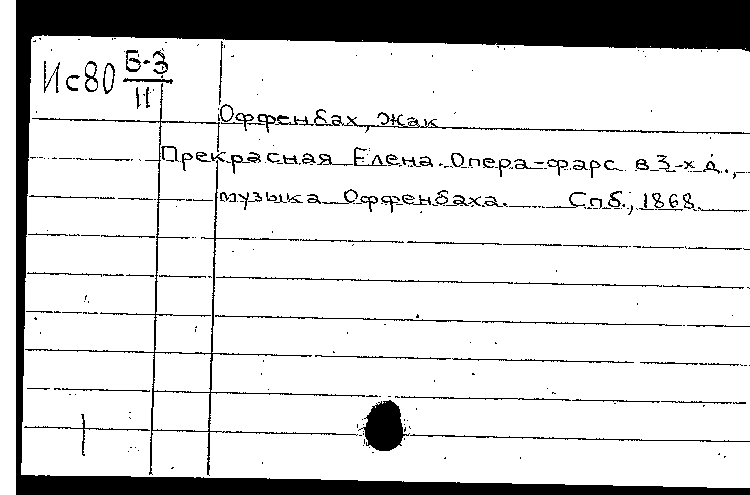 Ис80 Б-3
11
Оффенбах, Жак
Прекрасная Елена. Опера-фарс в 3-х д.,
музыка Оффенбаха. Спб., 1868.